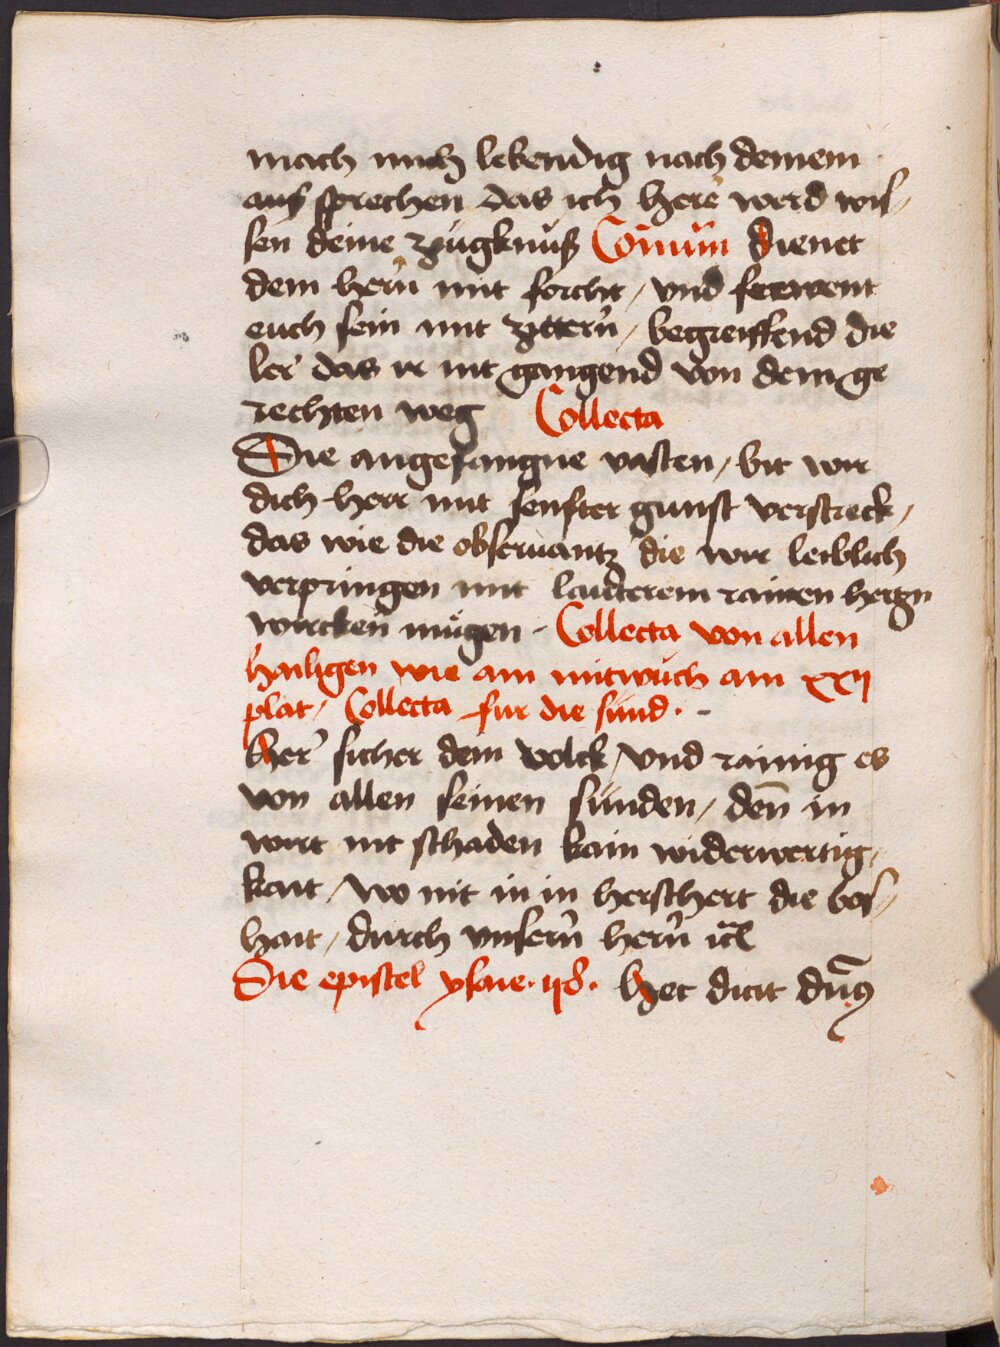 mach mich lebendig nach deinem
auß sprechen das ich here werd wis¬
sen deine zügknuß Com̄un̄ Dienet
dem hern̄ mit forcht / vnd frewent
euch sein mit zittern̄ / begreiffend die
ler das ir nit gangend von dem ge
rechten weg Collecta
Die angefangne vasten / bit wir
dich herr mit senfter gunst verstreck /
das wie die obseruantz die wir leiblich
verpringen mit lauterem rainen hertzn
wircken mügen · Collecta von allen
hailigen wie am mitwuch am xxij
plat / Collecta fur die sünd · -
Her sicher dein volck / vnd rainig es
von allen seinen sünden / den̄ in
wirt nit schaden kain widerwertig /
kait / wo nit in in herschert die bos /
hait / durch vnsern̄ hern̄ ic̄
Die epistel ysaie · 58 · Hec dicit dn̄s